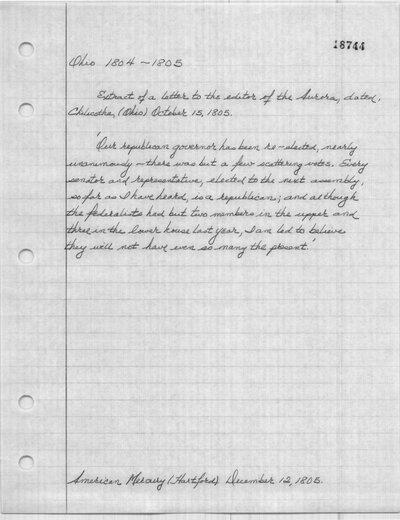 18744
Ohio 1804-1805
Extract of a letter to the editor of the Aurora, dated,
Chilicothe, (Ohio) October 15, 1805.
'Our republican governor has been re-elected, nearly
unanimously - there was but a few scattering votes. Every
senator and representative, elected to the next assembly,
so far as I have heard, is a republican; and although
the federalists had but two members in the upper and
three in the lower house last year, I am led to believe
they will not have even so many the present.'
American Mercury (Hartford) December 12, 1805.